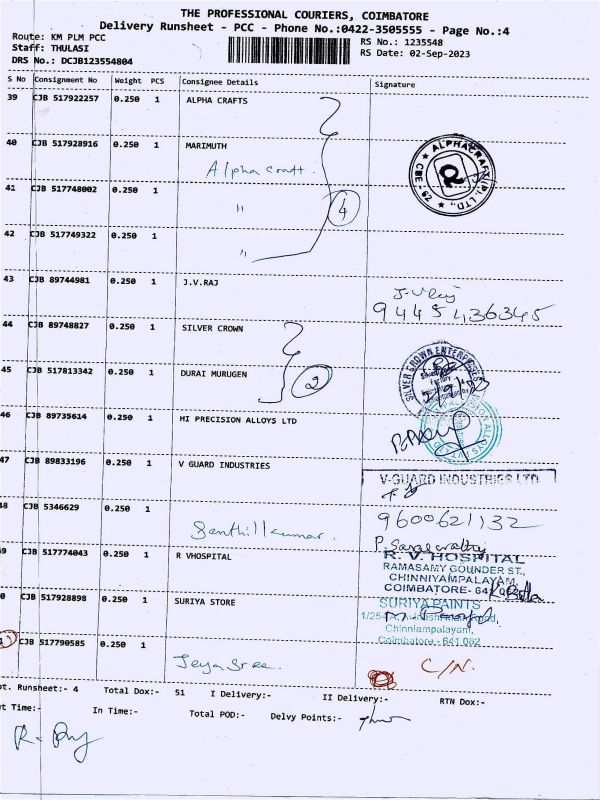 THE PROFESSIONAL COURIERS, COIMBATORE
Delivery Runsheet - PCC - Phone No.:0422-3505555 - Page No.:4
Route: KM PLM PCC
RS No.: 1235548
Staff: THULASI
RS Date: 02-Sep-2023
DRS No.: DCJB123554804
S No Consignment No Weight PCS Consignee Details Signature
39 CJB 517922257 0.250 1 ALPHA CRAFTS
40 CJB 517928916 0.250 1 MARIMUTH
Alpha craft.
ALPHACRAFT (P) LTD., CBE - 29
41 CJB 517748002 0.250 1 "
4
42 CJB 517749322 0.250 1 "
43 CJB 89744981 0.250 1 J.V.RAJ
9445436345
44 CJB 89748827 0.250 1 SILVER CROWN
SILVER CROWN ENTERPRISES
45 CJB 517813342 0.250 1 DURAI MURUGEN
2
46 CJB 89735614 0.250 1 HI PRECISION ALLOYS LTD
47 CJB 89833196 0.250 1 V GUARD INDUSTRIES
V-GUARD INDUSTRIES LTD
48 CJB 5346629 0.250 1 Senthil kumar.
9600621132
P. Saraswathy
49 CJB 517774043 0.250 1 R VHOSPITAL
R. V. HOSPITAL
RAMASAMY GOUNDER ST.,
CHINNIYAMPALAYAM,
COIMBATORE- 641
0 CJB 517928898 0.250 1 SURIYA STORE
SURIYA PAINTS
Chinniampalayam,
Coimbatore - 641 062
1 CJB 517790585 0.250 1 Jeya Sree.
C/N.
ot. Runsheet:- 4 Total Dox:- 51 I Delivery:- II Delivery:- RTN Dox:-
ut Time:- In Time:- Total POD:- Delvy Points:-